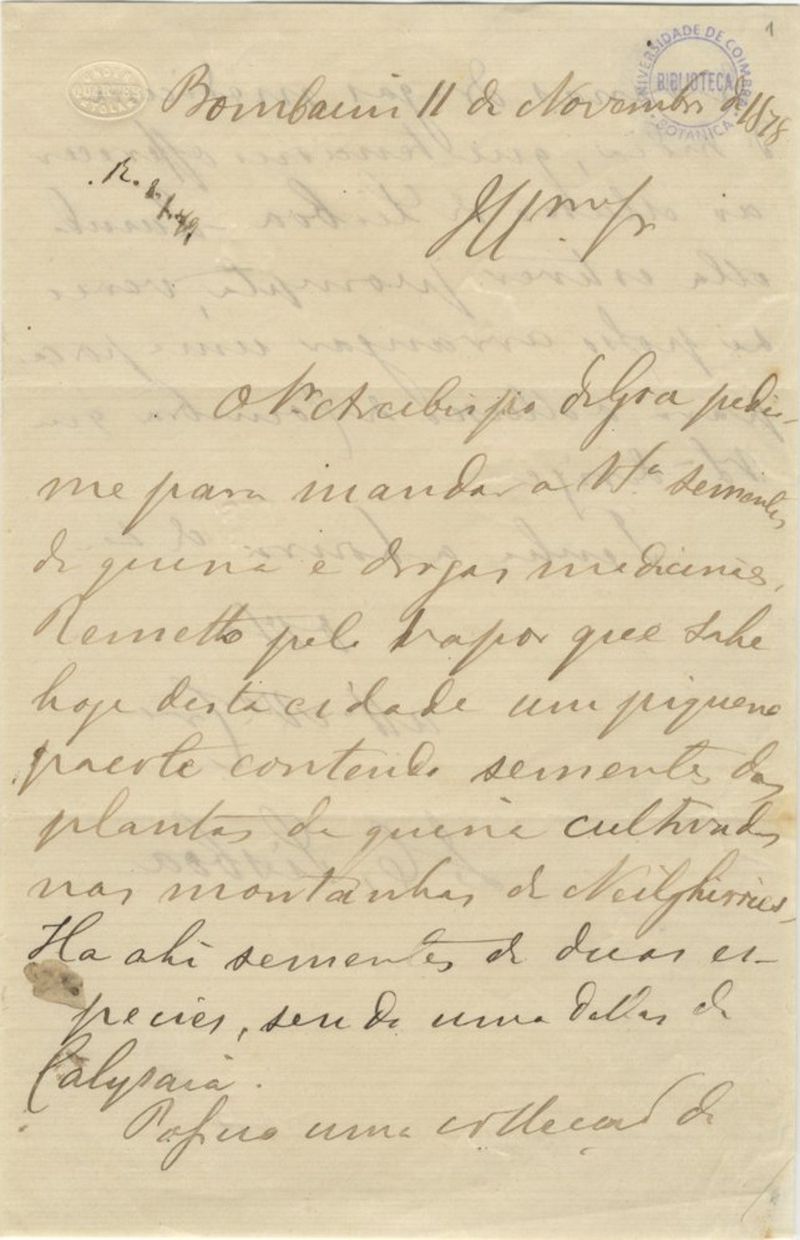 1
UNIVERSIDADE DE COIMBRA
BIBLIOTECA
BOTANICA
Bombaim 11 de Novembro de 1878
R.
Illmo Sr
O Sr Arcebispo de Goa pedio-
me para mandar a Vª sementes
de quina e drogas medicinaes.
Remetto pelo vapor que sahe
hoje desta cidade um piqueno
pacote contendo sementes das
plantas de quina cultivadas
nas montanhas de Neilghirries,
Ha ahi sementes de duas es-
pecies, sendo uma dellas de
Calysaia.
Possuo uma collecçaõ de